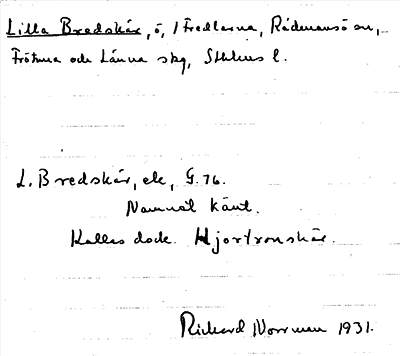 Lilla Bredskär, ö, i Fredlarna, Rådmansö sn,
Frötuna och Länna skg, Sthlms l.
L. Bredskär, ek, G. 76.
Namnet känt.
Kallas dock Hjortronskär.
Rickard Norrman 1931.